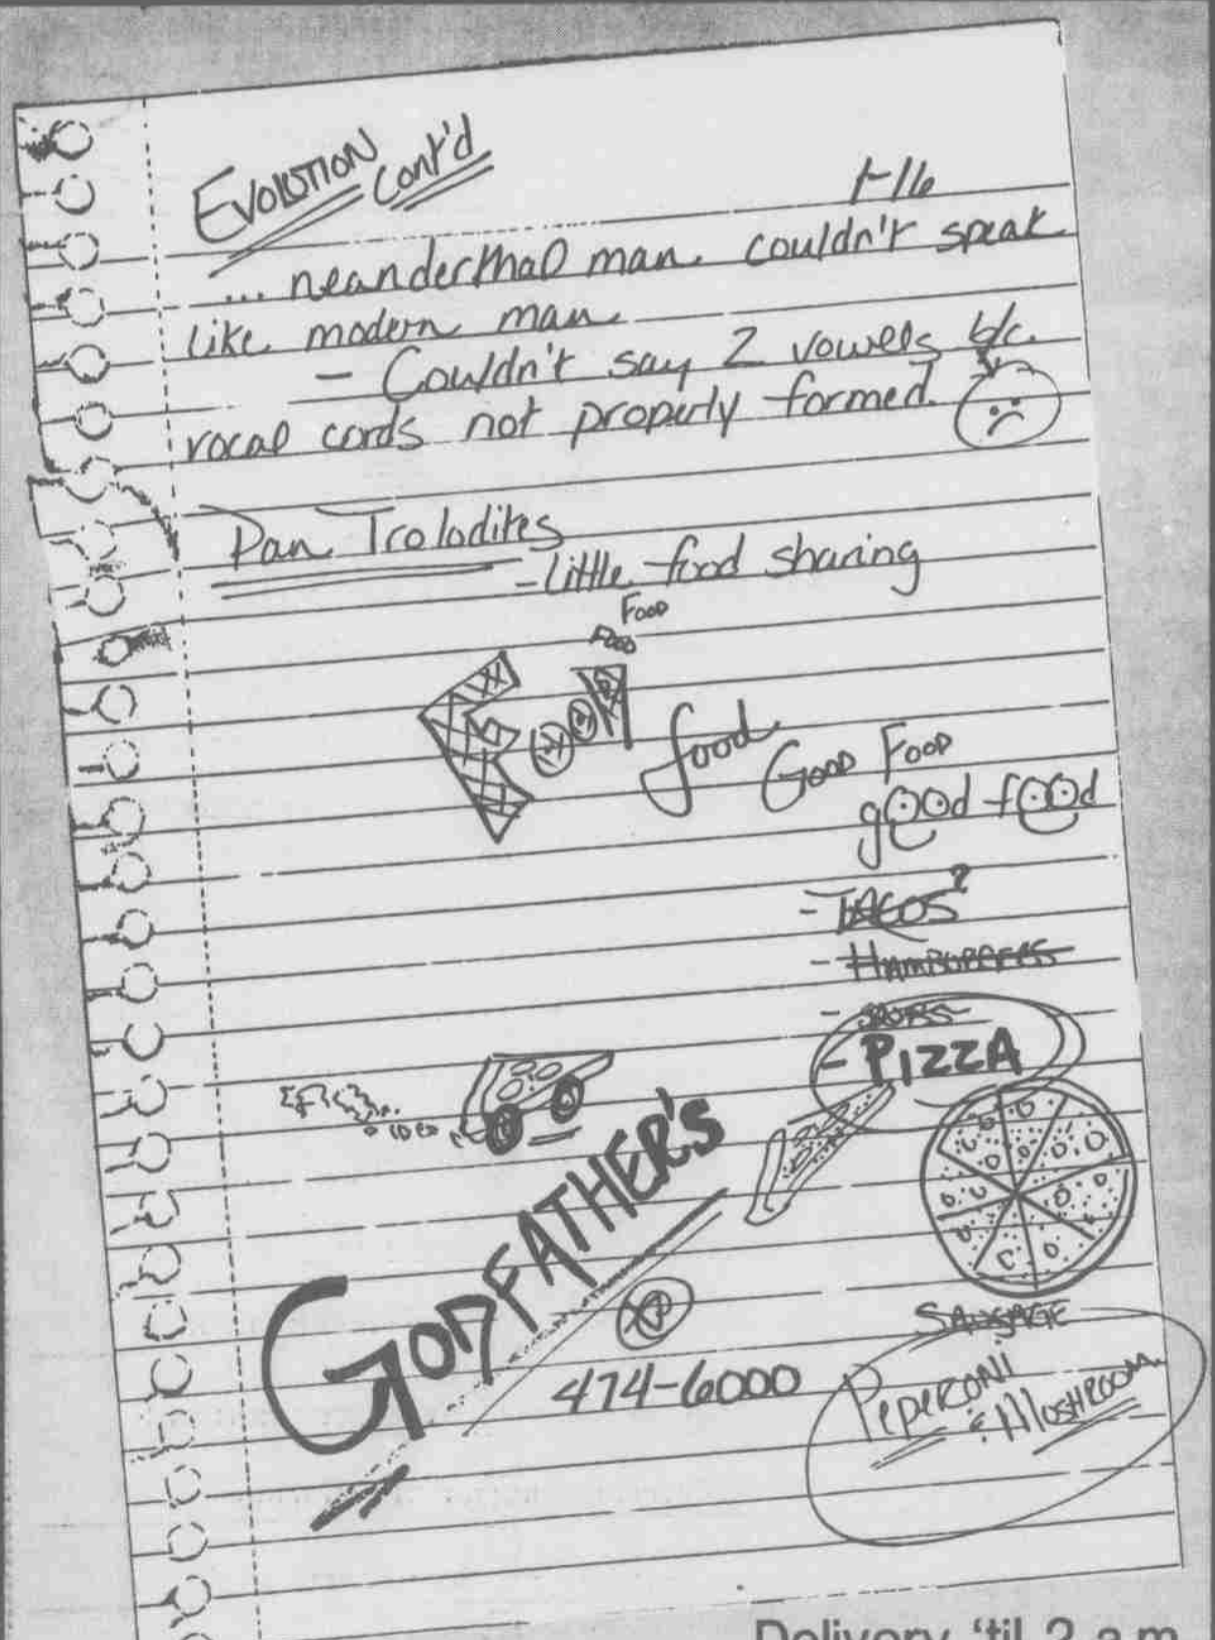 EVOLUTION cont'd
1-16
... neanderthal man. couldn't speak
like modern man.
- Couldn't say 2 vowels b/c.
vocal cords not properly formed.
Pan Trolodites
- little food sharing
FOOD
FOOD
FOOD
food
GOOD FOOD
good food
- TACOS?
- HAMBURGERS
- PIZZA
GODFATHER'S
474-6000
SAUSAGE
PEPERONI
& MUSHROOM
Delivery 'til 2 a.m